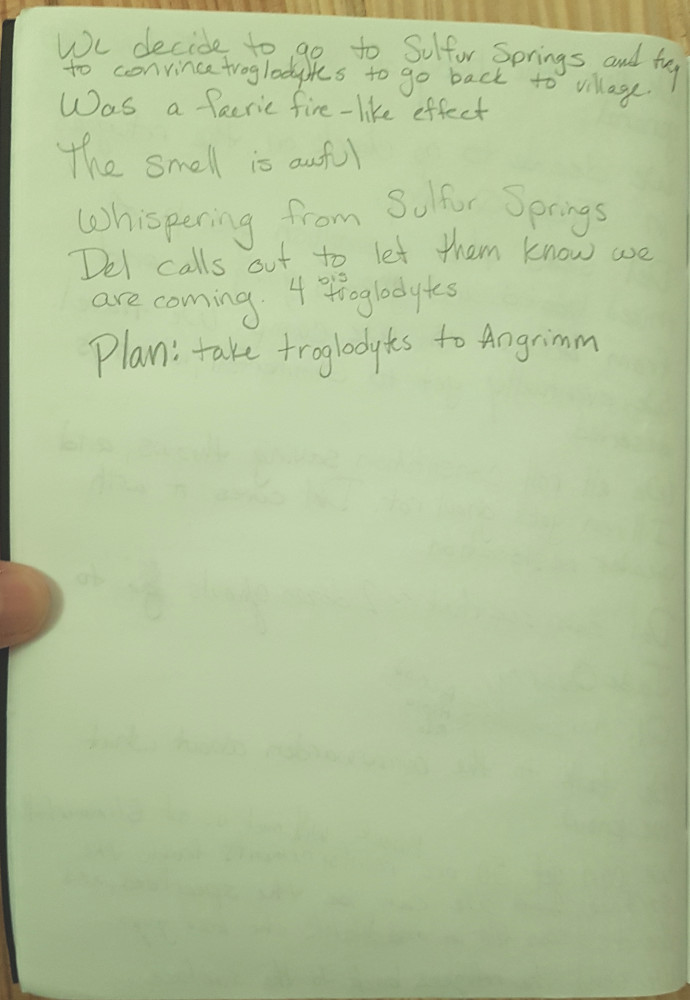 We decide to go to Sulfur Springs and try
to convince troglodytes to go back to village.
Was a faerie fire-like effect
The smell is awful
Whispering from Sulfur Springs
Del calls out to let them know we
are coming. 4 big troglodytes
Plan: take troglodytes to Angrimm